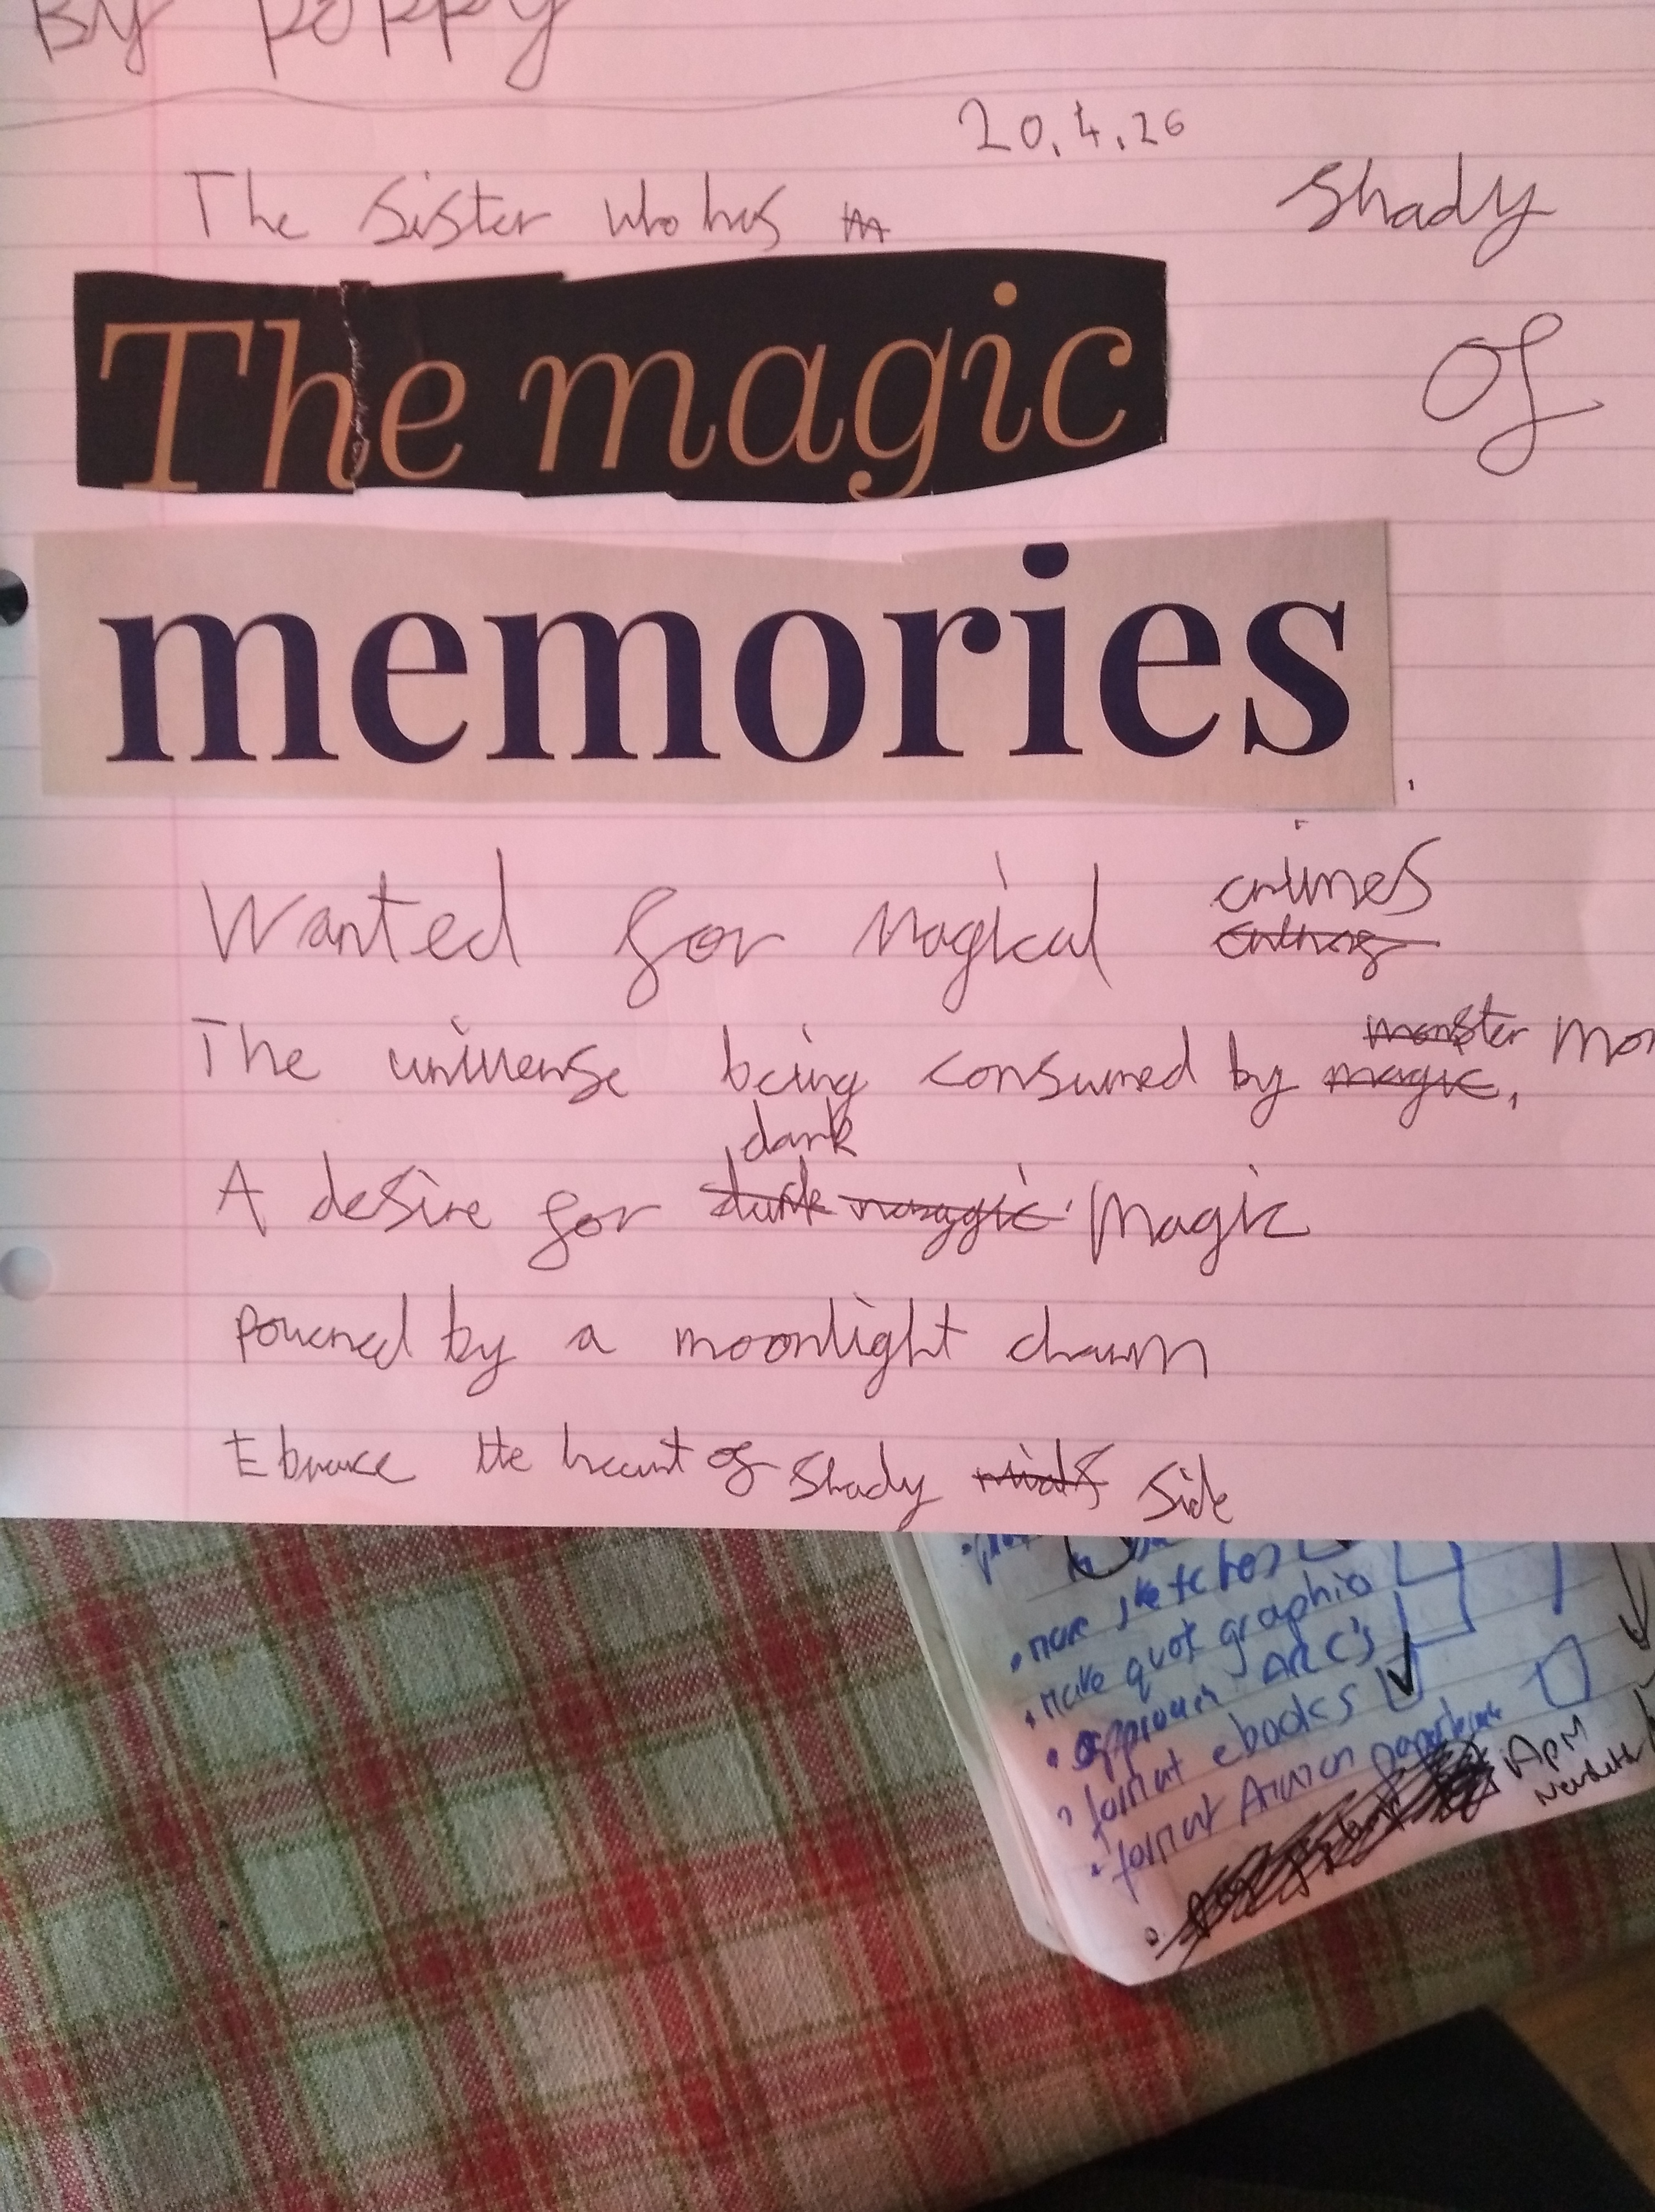 By Poppy
20.4.26
The sister who has m shady
The magic of
memories.
Wanted for Magical crimes
The universe being consumed by magic, monster Mon
A desire for dark magic dark Magic
powered by a moonlight charm
Ebrace the heart of Shady Side
more sketches
make quot graphic
approach ARC's
format ebooks
format
APM